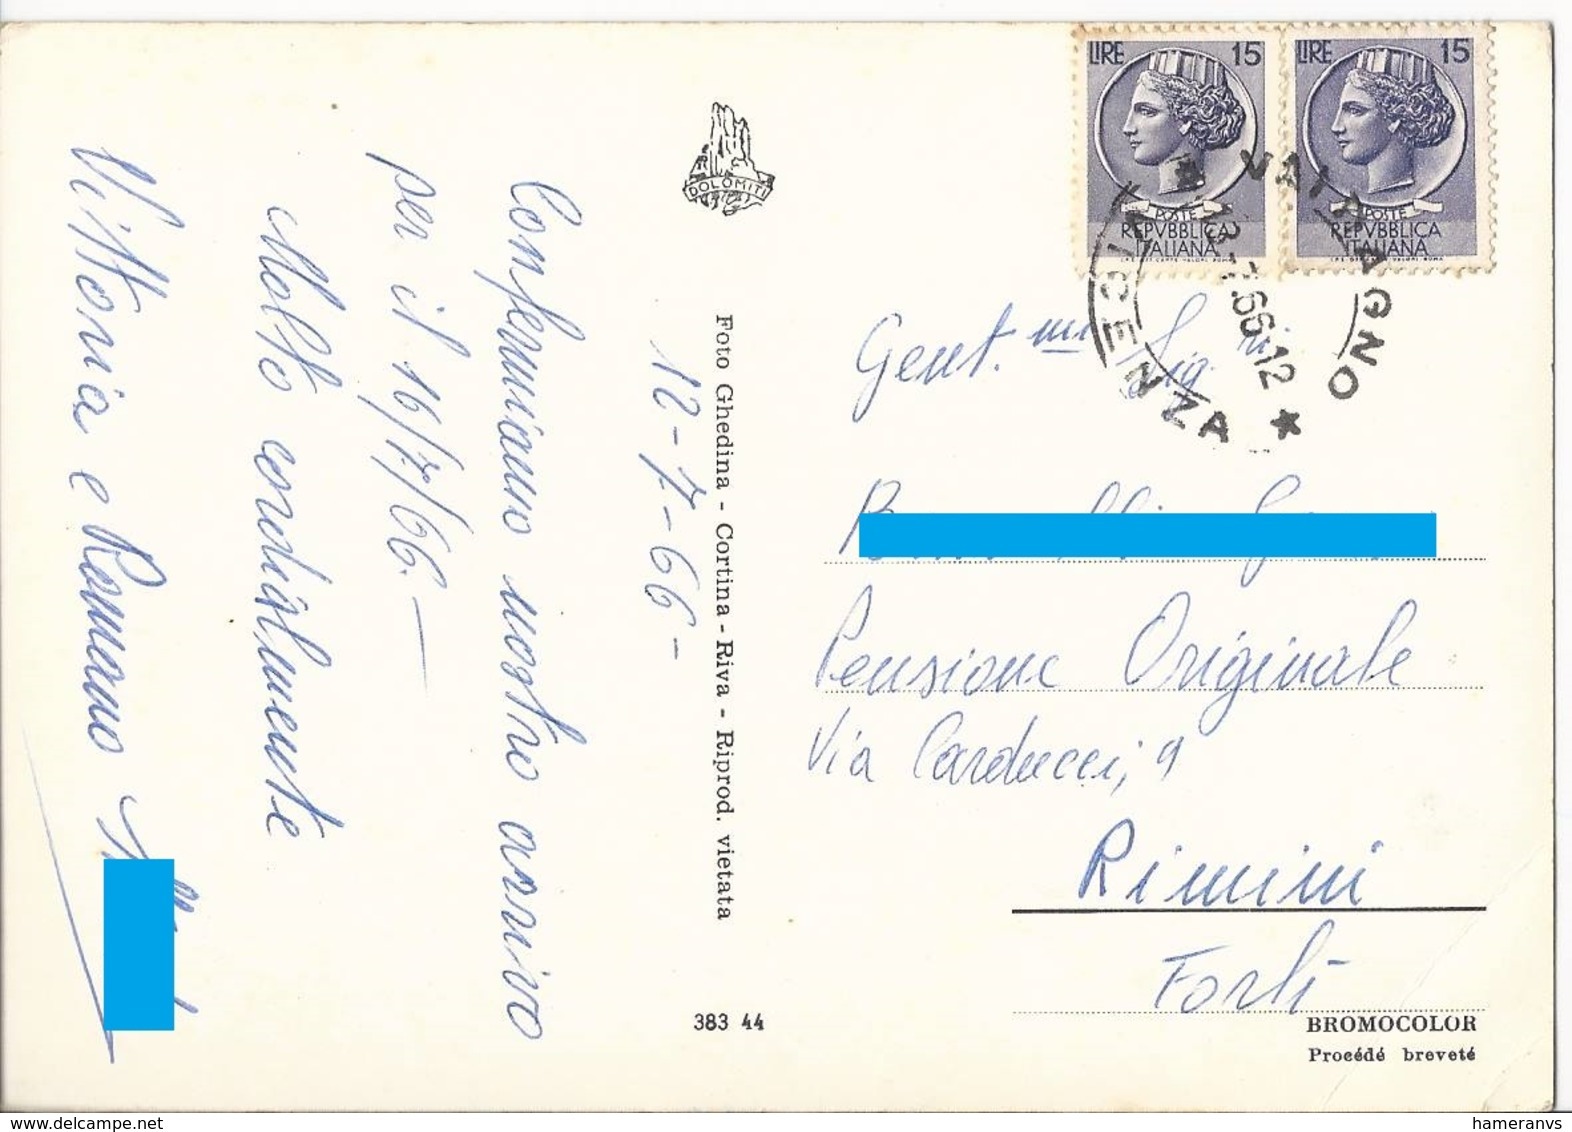 12-7-66-
Confermiamo nostro arrivo
per il 16/7/66.—
Molto cordialmente
Vittoria e Romano
DOLOMITI
Foto Ghedina - Cortina - Riva - Riprod. vietata
383 44
LIRE 15
POSTE
REPVBBLICA
ITALIANA
LIRE 15
POSTE
REPVBBLICA
ITALIANA
VALDAGNO
VICENZA
66-12
Gent.mi Sig.ri
Pensione Originale
Via Carducci, 9
Rimini
Forlì
BROMOCOLOR
Procédé breveté
hameranvs
https://www.delcampe.net